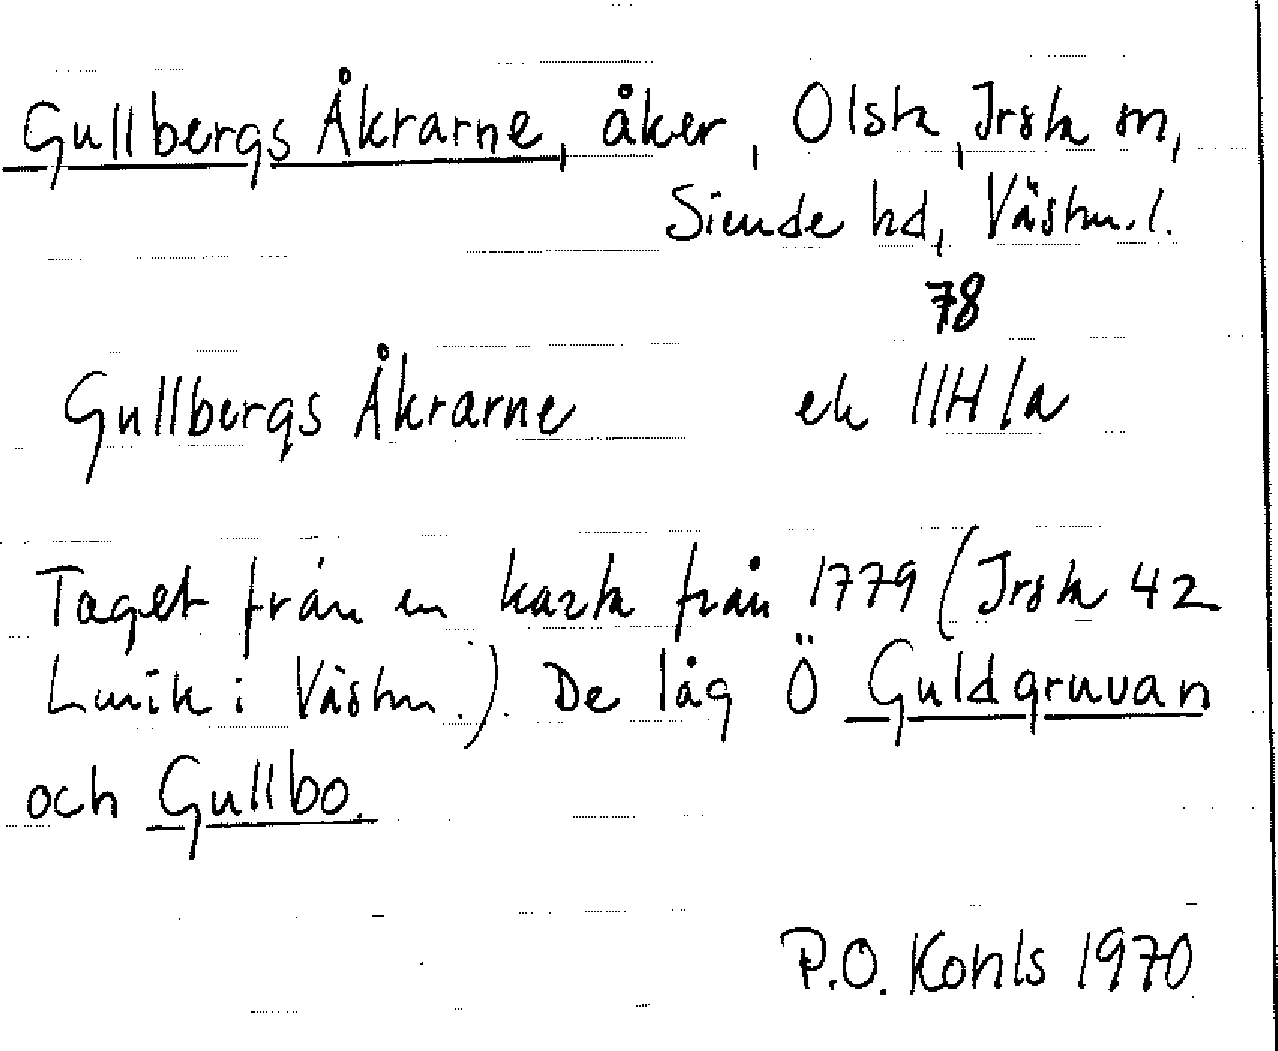 Gullbergs Åkrarne, åker, Olsta, Irsta sn,
Siende hd, Västm.l.
78
Gullbergs Åkrarne ek 11H/a
Taget från en karta från 1779 (Irsta 42
Lmk i Västm.). De låg Ö Guldgruvan
och Gullbo.
P.O. Kohls 1970